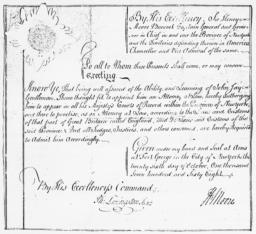 By His Excellency, Sir Henry
Moore Baronet, Captain General and Governor
in Chief in and over the Province of New York
and the Territories depending thereon in America
Chancellor and Vice Admiral of the same.
To all to Whom these Presents shall come, or may concern
Greeting
Know Ye, That being well assured of the Ability and Learning of John Jay
Gentleman, I have thought fit to appoint him an Attorney at Law, hereby authorizing
him to appear in all his Majesty's Courts of Record within the Province of New York
and there to practise, as an Attorney at Law, according to the Laws and Customs
of that part of Great Britain called England, and the Laws and Customs of the
said Province: And all Judges, Justices, and others concerned, are hereby required
to Admit him Accordingly.
Given under my hand and Seal at Arms
at Fort George in the City of New York the
twenty sixth day of October, One thousand
Seven hundred and Sixty Eight
By His Excellency's Command
H Moore